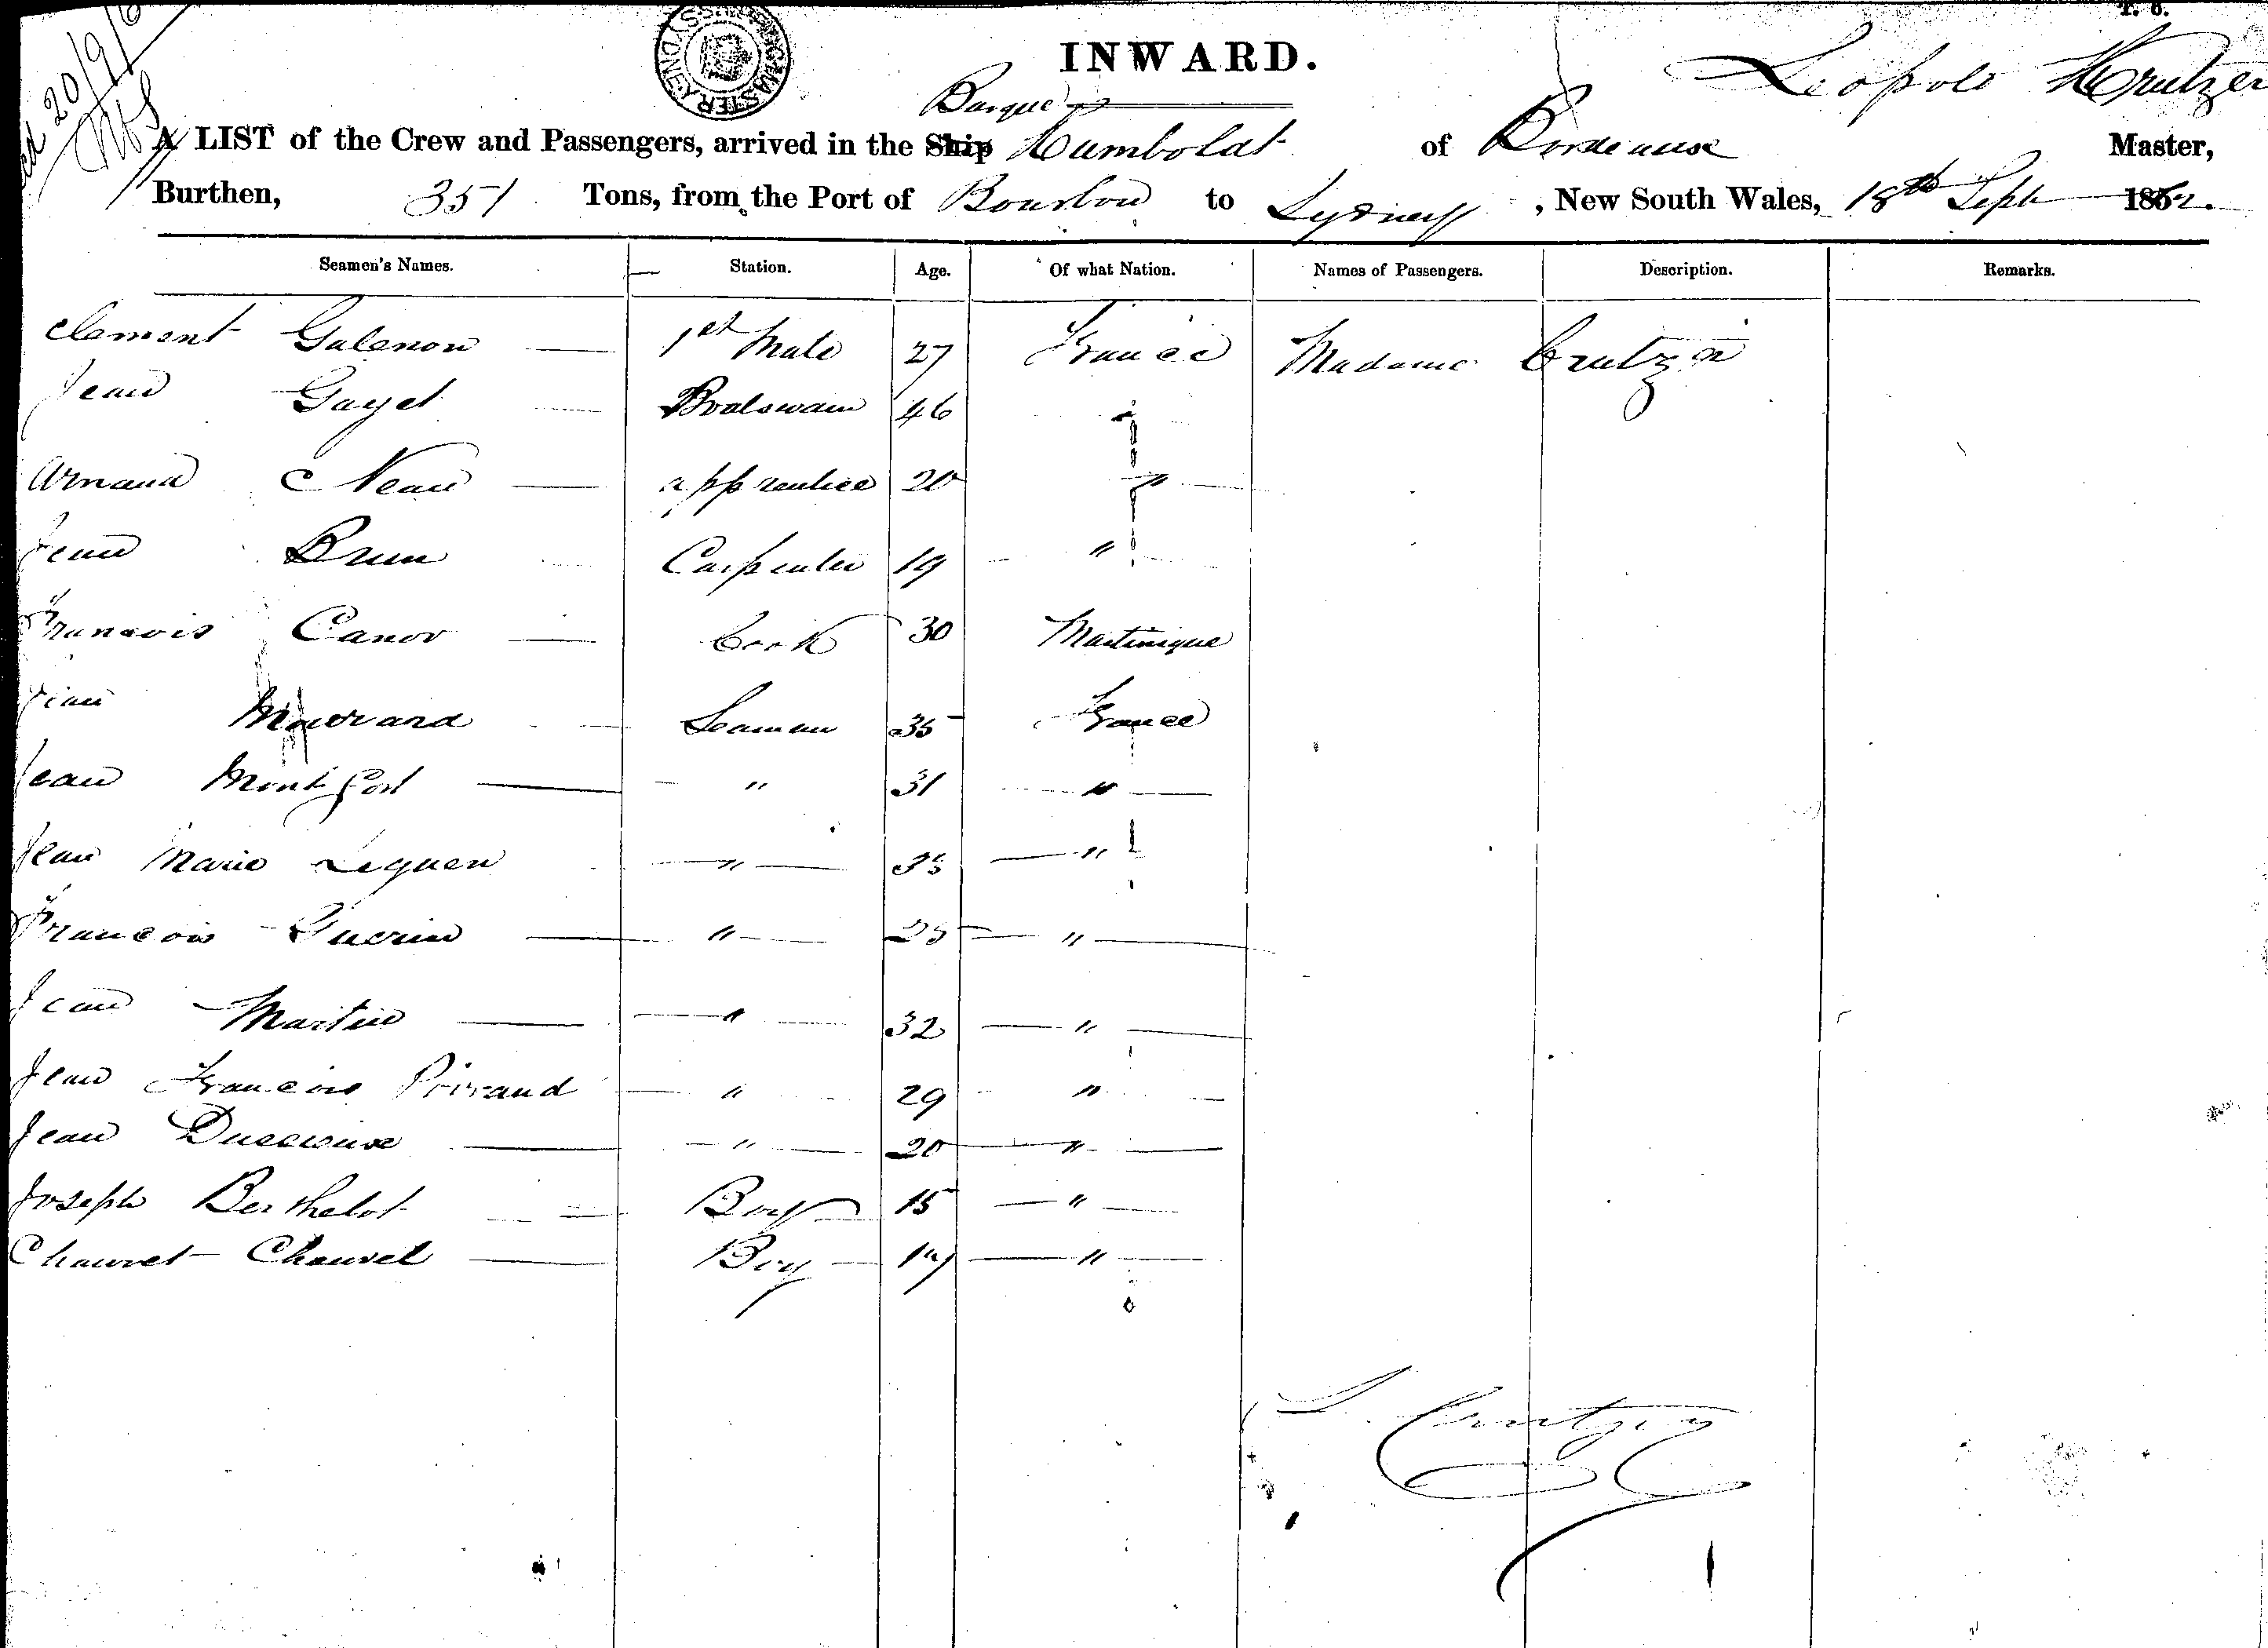 INWARD.
Leopold Krutzer
Barque
A LIST of the Crew and Passengers, arrived in the Ship Humboldt of Bordeaux Master,
Burthen, 351 Tons, from the Port of Bourbon to Sydney, New South Wales, 18th Sept 1862.
Seamen's Names. Station. Age. Of what Nation. Names of Passengers. Description. Remarks.
Clement Galenon 1st Mate 27 France Madame Crutzer
Jean Gayet Boatswain 46 "
Arnaud Neau apprentice 20 "
Jean Brun Carpenter 19 "
Francois Canor Cook 30 Martinique
Jean Seaman 35 France
Jean Montfort " 31 "
Jean Marie Leguen " 35 "
Francois Guerin " 25 "
Jean Martin " 32 "
Jean Francois Poiraud " 29 "
Jean " 20 "
Joseph Berthelot Boy 15 "
Chauvet Chauvet Boy "
L. Crutzer